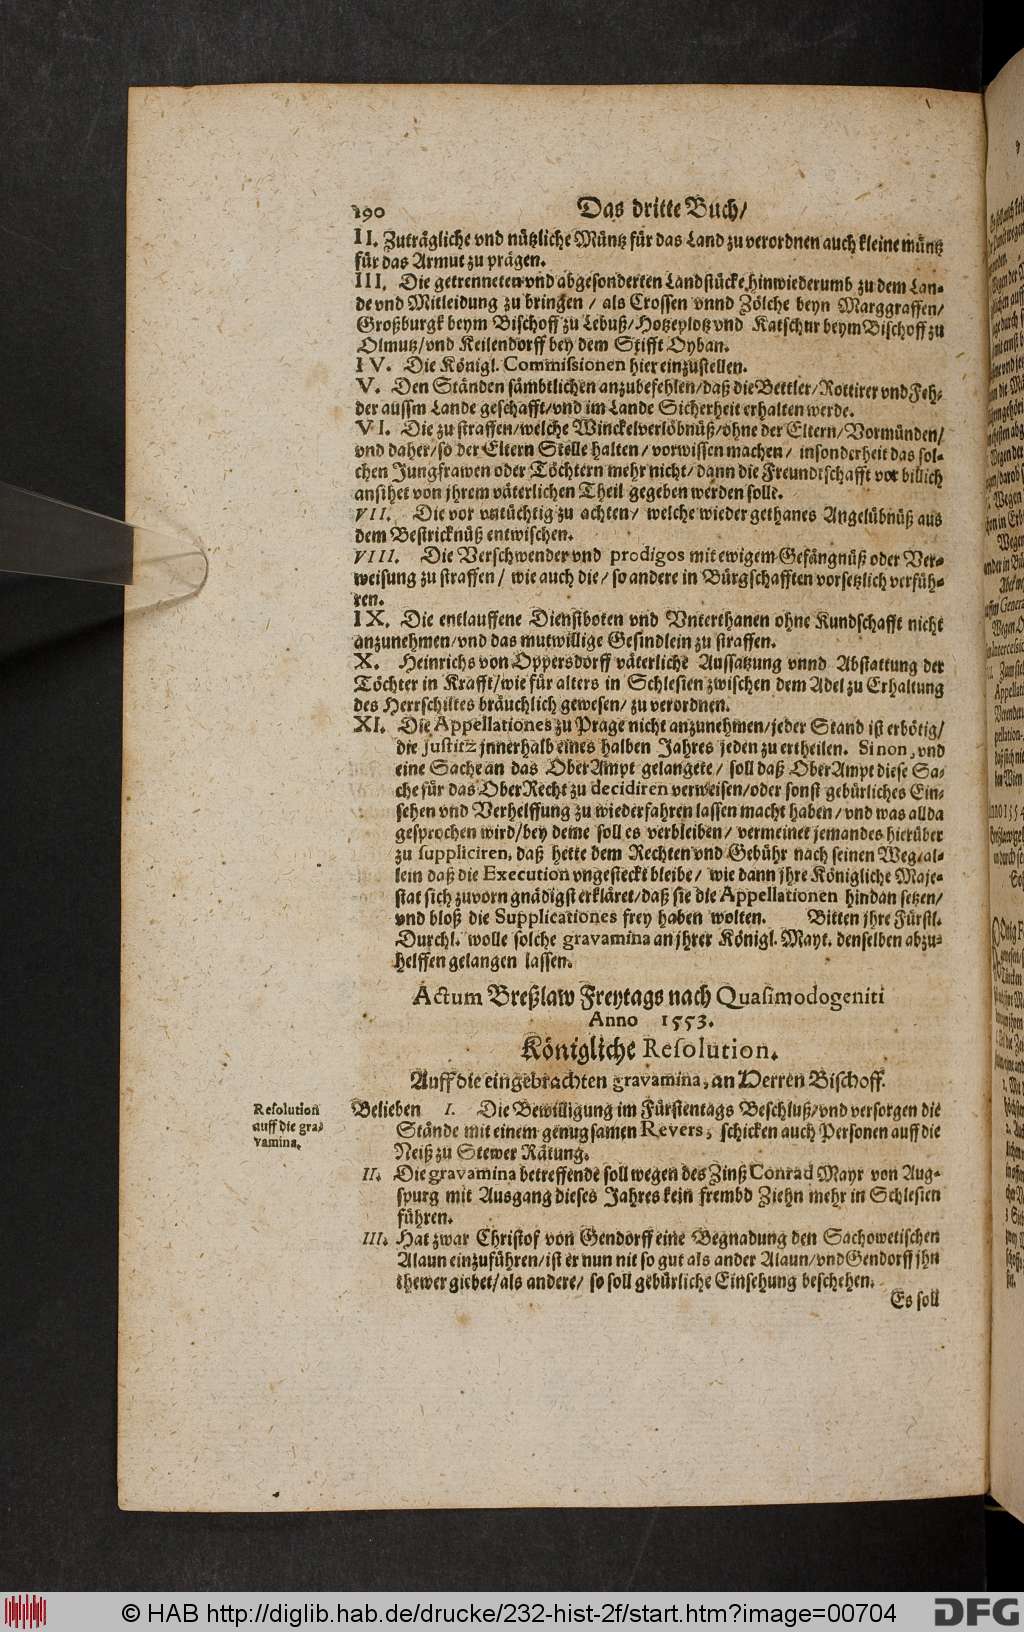 190 Das dritte Buch/
II. Zuträgliche vnd nützliche Müntz für das Land zu verordnen auch kleine müntz
für das Armut zu prägen.
III. Die getrenneten vnd abgesonderten Landstücke hinwiederumb zu dem Lan-
de vnd Mitleidung zu bringen / als Crossen vnnd Zölche beyn Marggraffen/
Großburgk beym Bischoff zu Lebuß/Hotzeplotz vnd Katschur beym Bischoff zu
Olmutz/vnd Keilendorff bey dem Stifft Oyban.
IV. Die Königl. Commissionen hier einzustellen.
V. Den Ständen sämbtlichen anzubefehlen/daß die Bettler/Rottirer vnd Feh-
der aussm Lande geschafft/vnd im Lande Sicherheit erhalten werde.
VI. Die zu straffen/welche Winckelverlöbnüß/ohne der Eltern/Vormünden/
vnd daher/so der Eltern Stelle halten/vorwissen machen/ insonderheit das sol-
chen Jungfrawen oder Töchtern mehr nicht/dann die Freundtschafft vor billich
ansihet von jhrem väterlichen Theil gegeben werden solle.
VII. Die vor vntüchtig zu achten/ welche wieder gethanes Angelübnüß aus
dem Bestricknüß entwischen.
VIII. Die Verschwender vnd prodigos mit ewigem Gefängnüß oder Ver-
weisung zu straffen/ wie auch die/so andere in Bürgschafften vorsetzlich verfüh-
ren.
IX. Die entlauffene Dienstboten vnd Vnterthanen ohne Kundschafft nicht
anzunehmen/vnd das mutwillige Gesindlein zu straffen.
X. Heinrichs von Oppersdorff väterliche Aussatzung vnnd Abstattung der
Töchter in Krafft/wie für alters in Schlesien zwischen dem Adel zu Erhaltung
des Herrschiltes bräuchlich gewesen/zu verordnen.
XI. Die Appellationes zu Prage nicht anzunehmen/jeder Stand ist erbötig/
die justitz jnnerhalb eines halben Jahres jeden zu ertheilen. Sinon, vnd
eine Sache an das OberAmpt gelangete/ soll daß OberAmpt diese Sa-
che für das OberRecht zu decidiren verweisen/oder sonst gebürliches Ein-
sehen vnd Verhelffung zu wiederfahren lassen macht haben/vnd was allda
gesprochen wird/bey deme soll es verbleiben/ vermeinet jemandes hierüber
zu suppliciren, daß hette dem Rechten vnd Gebühr nach seinen Weg/al-
lein daß die Execution vngesteckt bleibe/ wie dann jhre Königliche Maje-
stat sich zuvorn gnädigst erkläret/daß sie die Appellationen hindan setzen/
vnd bloß die Supplicationes frey haben wolten. Bitten jhre Fürstl.
Durchl. wolle solche gravamina an jhrer Königl. Mayt. denselben abzu-
helffen gelangen lassen.
Actum Breßlaw Freytags nach Quasimodogeniti
Anno 1553.
Königliche Resolution.
Auff die eingebrachten gravamina, an Herren Bischoff.
Resolution
auff die gra-
vamina.
Belieben I. Die Bewilligung im Fürstentags Beschluß/vnd versorgen die
Stände mit einem genugsamen Revers, schicken auch Personen auff die
Neiß zu Stewer Rätung.
II. Die gravamina betreffende soll wegen des Zinß Conrad Mayr von Aug-
spurg mit Ausgang dieses Jahres kein frembd Ziehn mehr in Schlesien
führen.
III. Hat zwar Christof von Gendorff eine Begnadung den Sachowetischen
Alaun einzuführen/ist er nun nit so gut als ander Alaun/vnd Gendorff jhn
thewer giebet/als andere/ so soll gebürliche Einsehung beschehen.
Es soll
© HAB http://diglib.hab.de/drucke/232-hist-2f/start.htm?image=00704
DFG